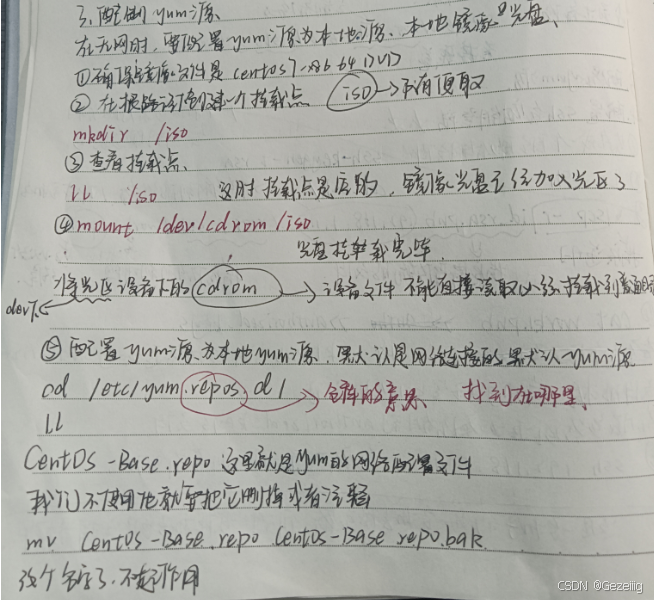 3、配制yum源
在无网时,要配置yum源为本地源、本地镜像 光盘、
①确保镜像文件是centos7-x86 64 DVD
② 在根路径下创建一个挂载点 iso
mkdir /iso
③查看挂载点、
ll /iso 这时挂载点是空的,镜像光盘已经加入光区了
④mount /dev/cdrom /iso
光盘挂载完毕.
将光区设备下的 cdrom → 设备文件 不能直接读取必须挂载到
dev下
⑤ 配置yum源为本地yum源,默认是网络连接的默认yum源
cd /etc/yum.repos.d/ → 仓库的意思 找到在哪里、
ll
CentOS-Base.repo 这里就是yum的网络配置文件
我们不使用他就要把它删掉或者注释
mv CentOS-Base.repo CentOS-Base.repo.bak
改个名字了、不起作用
CSDN @Gezeiiig